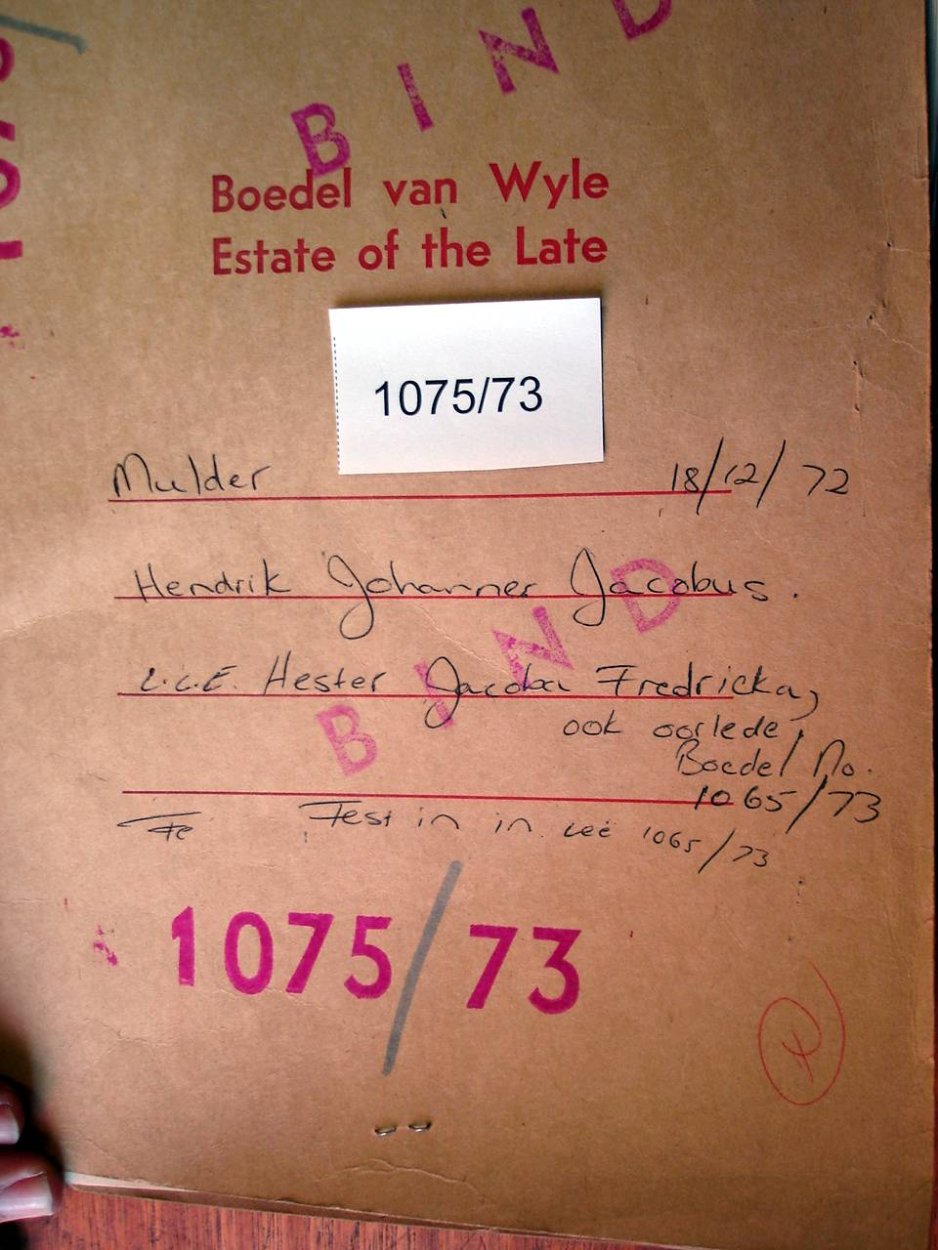 BIND
Boedel van Wyle
Estate of the Late
1075/73
Mulder 18/12/72
Hendrik Johannes Jacobus.
Hester Jacoba Fredricka,
BIND
ook oorlede,
Boedel No.
1065/73
Test in in Leë 1065/73
1075/73